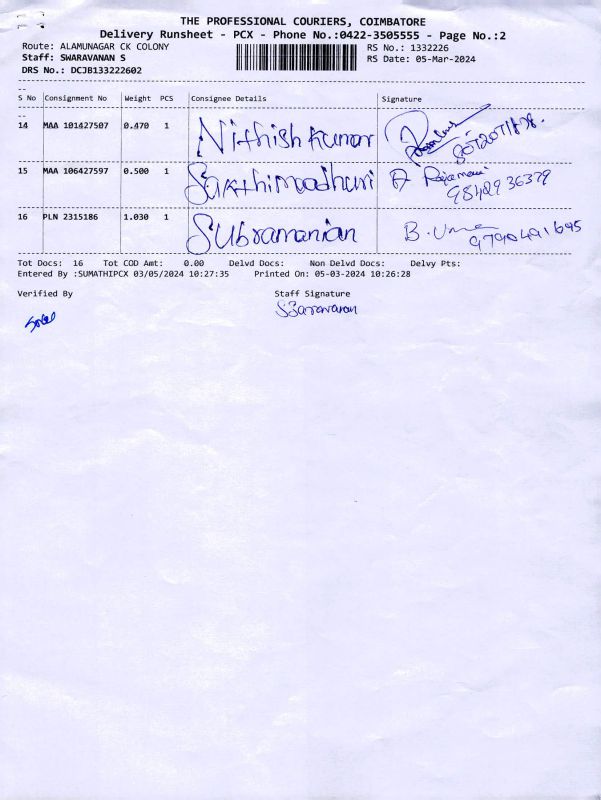 THE PROFESSIONAL COURIERS, COIMBATORE
Delivery Runsheet - PCX - Phone No.:0422-3505555 - Page No.:2
Route: ALAMUNAGAR CK COLONY RS No.: 1332226
Staff: SWARAVANAN S RS Date: 05-Mar-2024
DRS No.: DCJB133222602
S No Consignment No Weight PCS Consignee Details Signature
14 MAA 101427507 0.470 1 Nithish Kumar
15 MAA 106427597 0.500 1 Sakthimadhuri Rajamani
98429 36379
16 PLN 2315186 1.030 1 Subramanian B. Uma
9790491695
Tot Docs: 16 Tot COD Amt: 0.00 Delvd Docs: Non Delvd Docs: Delvy Pts:
Entered By :SUMATHIPCX 03/05/2024 10:27:35 Printed On: 05-03-2024 10:26:28
Verified By Staff Signature